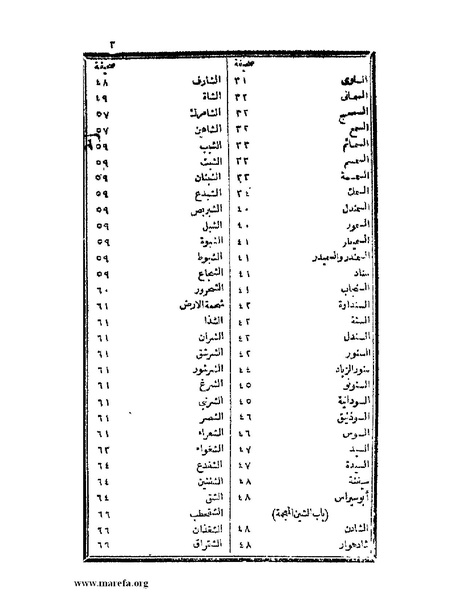 ٣
صحيفة
السلوى ٣١
السمانى ٣٢
السمحج ٣٢
السمع ٣٢
السمائم ٣٣
السمسم ٣٣
السمسمة ٣٣
السمك ٣٤
السمندل ٤٠
السمور ٤٠
السميطر ٤١
السمندر والسميدر ٤١
سناد ٤١
السنجاب ٤١
السنداوة ٤٢
السنة ٤٢
السندل ٤٢
السنور ٤٢
سنور الزباد ٤٤
السنونو ٤٥
السودانية ٤٥
السوذنيق ٤٦
السوس ٤٦
السيد ٤٧
السيدة ٤٧
سفينة ٤٨
أبو سيراس ٤٨
(باب الشين المعجمة)
الشادن ٤٨
شادهوار ٤٨
صحيفة
الشارف ٤٨
الشاة ٤٩
الشامرك ٥٧
الشاهين ٥٧
الشبب ٥٩
الشبث ٥٩
الشبثان ٥٩
الشبدع ٥٩
الشبربص ٥٩
الشبل ٥٩
الشبوة ٥٩
الشبوط ٥٩
الشجاع ٥٩
الشحرور ٦٠
شحمة الارض ٦١
الشذا ٦١
الشران ٦١
الشرشق ٦١
الشرشور ٦١
الشرغ ٦١
الشرنبي ٦١
الشصر ٦١
الشعراء ٦١
الشغواء ٦٣
الشفدع ٦٤
الشفنين ٦٤
الشق ٦٤
الشقحطب ٦٦
الشقذان ٦٦
الشقراق ٦٦
www.marefa.org